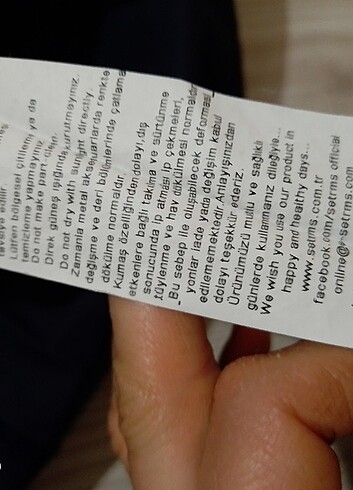 tavsiye edilir.
Lütfen bölgesel çitileme ya da
temizleme yapmayınız.
Do not make part clean.
Direk güneş ışığında kurutmayınız.
Do not dry with sunlight directly.
Zamanla metal aksesuarlarda renkte
değişme ve deri bölümlerinde çatlama
dökülme normaldir.
Kumaş özelliğinden dolayı, dış
etkenlere bağlı takılma ve sürtünme
sonucunda ip atması ip çekmeleri,
tüylenme ve hav dökülmesi normaldir.
Bu sebep ile oluşabilecek deformas
yonlar iade yada değişim kabul
edilememektedir. Anlayışınızdan
dolayı teşekkür ederiz.
Ürünümüzü mutlu ve sağlıklı
günlerde kullanmanız dileğiyle...
We wish you use our product in
happy and healthy days...
www.setrms.com.tr
facebook.com/setrms official
online@e-setrms.com